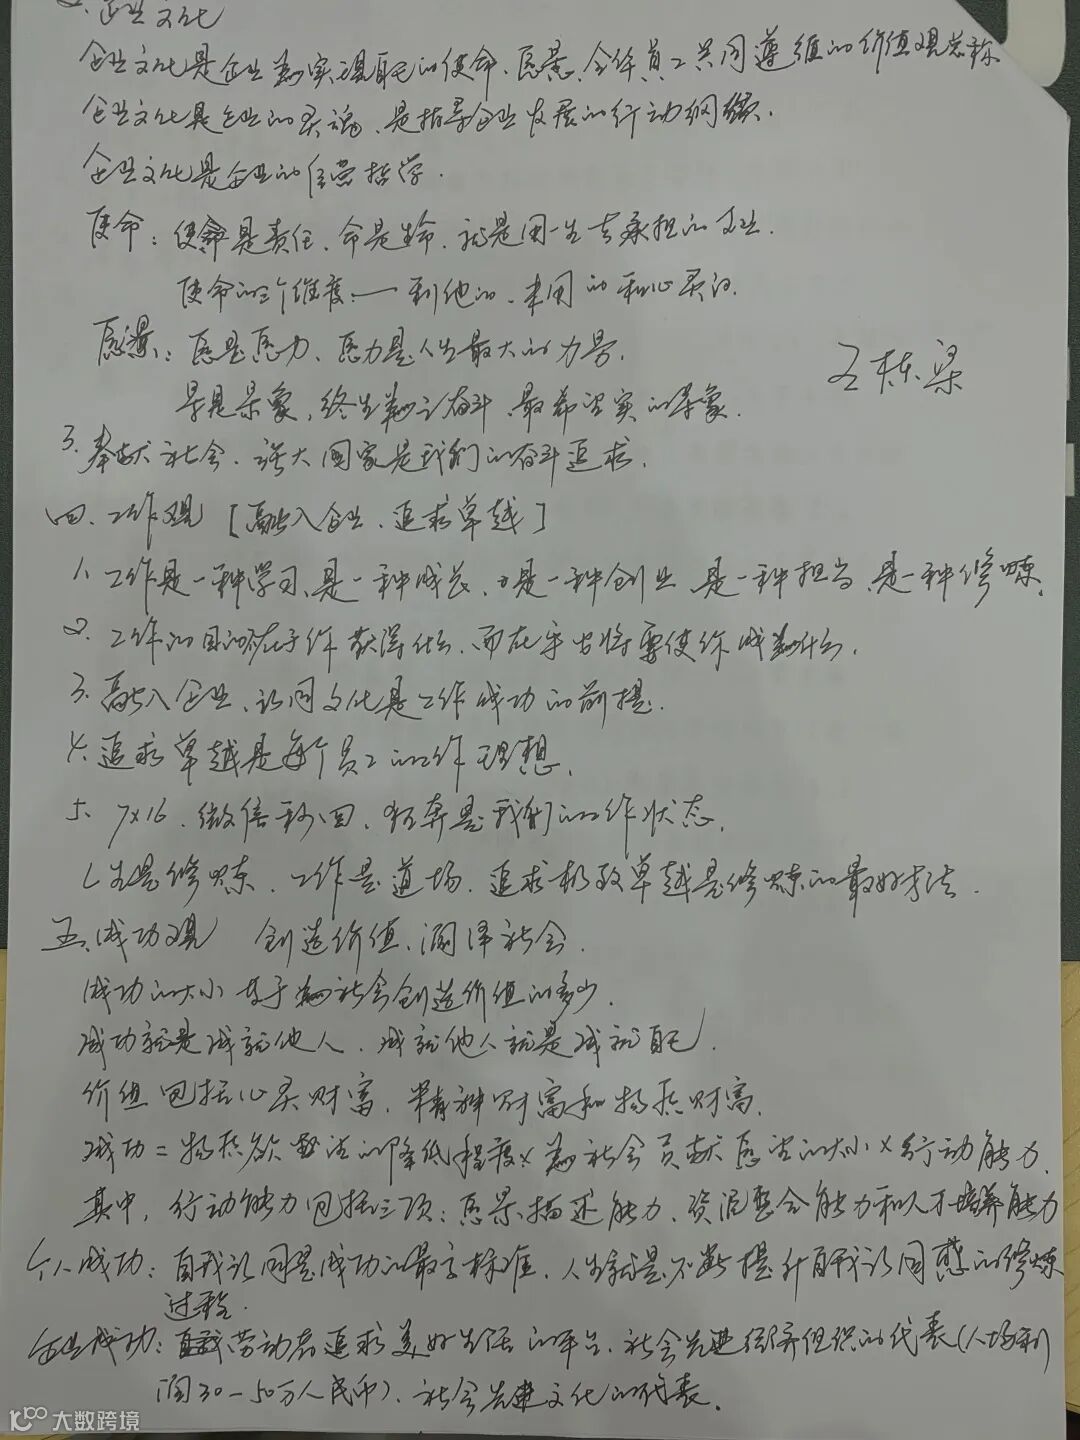 2. 企业文化
企业文化是企业为实现自己的使命、愿景、全体员工共同遵循的价值观总称
企业文化是企业的灵魂、是指导企业发展的行动纲领.
企业文化是企业的经营哲学.
使命: 使是责任、命是生命、就是用一生去承担的事业.
使命的三个维度:— 利他的、利心灵的
愿景: 愿是愿力、愿力是人生最大的力量.
景是景象, 终生为之奋斗、最希望实的景象.
王栋梁
3. 奉献社会、强大国家是我们的奋斗追求.
四、工作观 [融入企业、追求卓越]
1、工作是一种学习、是一种成长、是一种创业、是一种担当、是一种修炼.
2. 工作的目的不在于你获得什么、而在乎它将要使你成为什么.
3. 融入企业、认同文化是工作成功的前提.
4. 追求卓越是每个员工的工作理想.
5. 7x16、微信秒回、狂奔是我们的工作状态.
人生是修炼、工作是道场、追求极致卓越是修炼的最好方法.
五、成功观 创造价值、润泽社会.
成功的大小在于为社会创造价值的多少.
成功就是成就他人、成就他人就是成就自己.
价值包括心灵财富、精神财富和物质财富.
成功=物质欲望的降低程度×为社会贡献愿望的大小×行动能力.
其中, 行动能力包括三项: 愿景描述能力、资源整合能力和人才培养能力
个人成功: 自我认同是成功的最高标准、人生就是不断提升自我认同感的修炼
过程.
企业成功: 劳动者追求美好生活的平台、社会先进经济组织的代表(人均利
润30-50万人民币)、社会先进文化的代表.
大数跨境